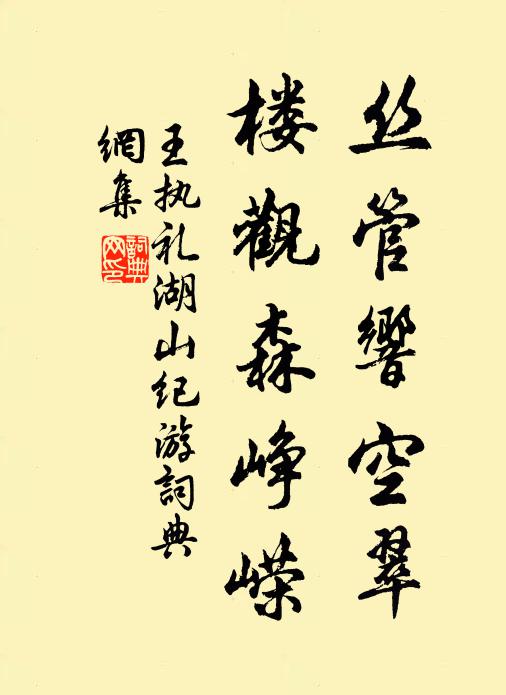 丝管響空翠
楼觀森峥嵘
王执礼湖山纪游詞典
網集
詞典网印